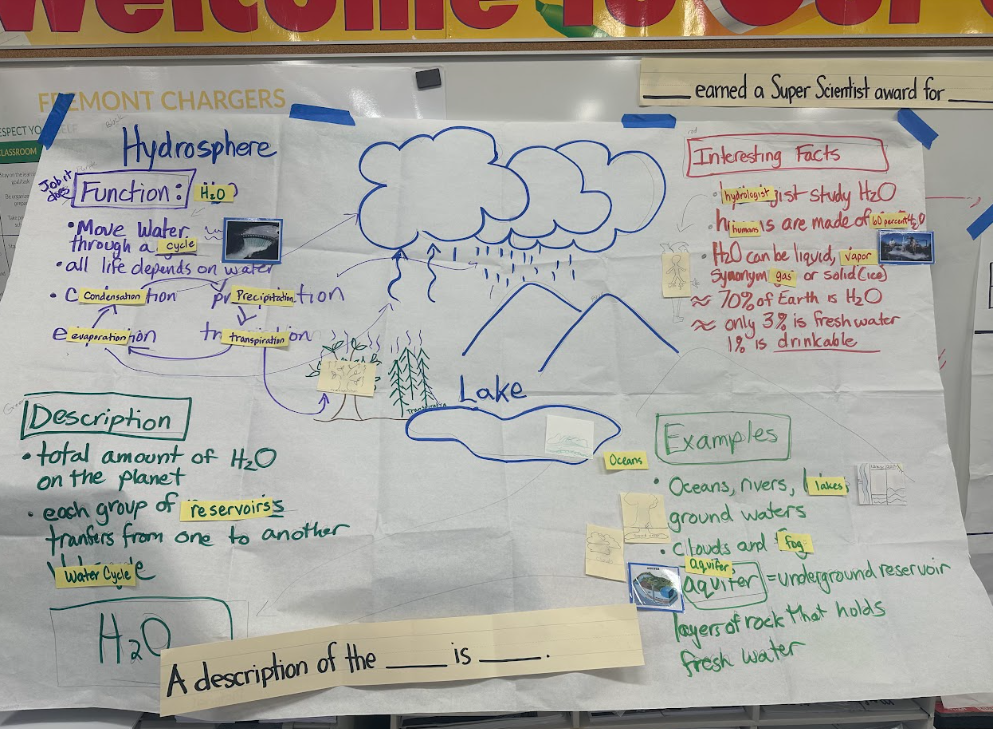 Welcome To Our
FREMONT CHARGERS
CLASSROOM
____ earned a Super Scientist award for ____
Hydrosphere
Job it does
Function:
H2O
• Move Water
through a cycle
• all life depends on water
• Condensation
Precipitation
evaporation
transpiration
Description
• total amount of H2O
on the planet
• each group of reservoirs
tranfers from one to another
Water Cycle
H2O
Lake
Interesting Facts
• hydrologist study H2O
• humans are made of 60 percent H2O
• H2O can be liquid, vapor
synonym gas or solid (ice)
≈ 70% of Earth is H2O
≈ only 3% is fresh water
1% is drinkable
Examples
Oceans
• Oceans, rivers, lakes
ground waters
• clouds and fog
aquifer
aquifer = underground reservoir
layers of rock that holds
fresh water
A description of the ____ is ____.